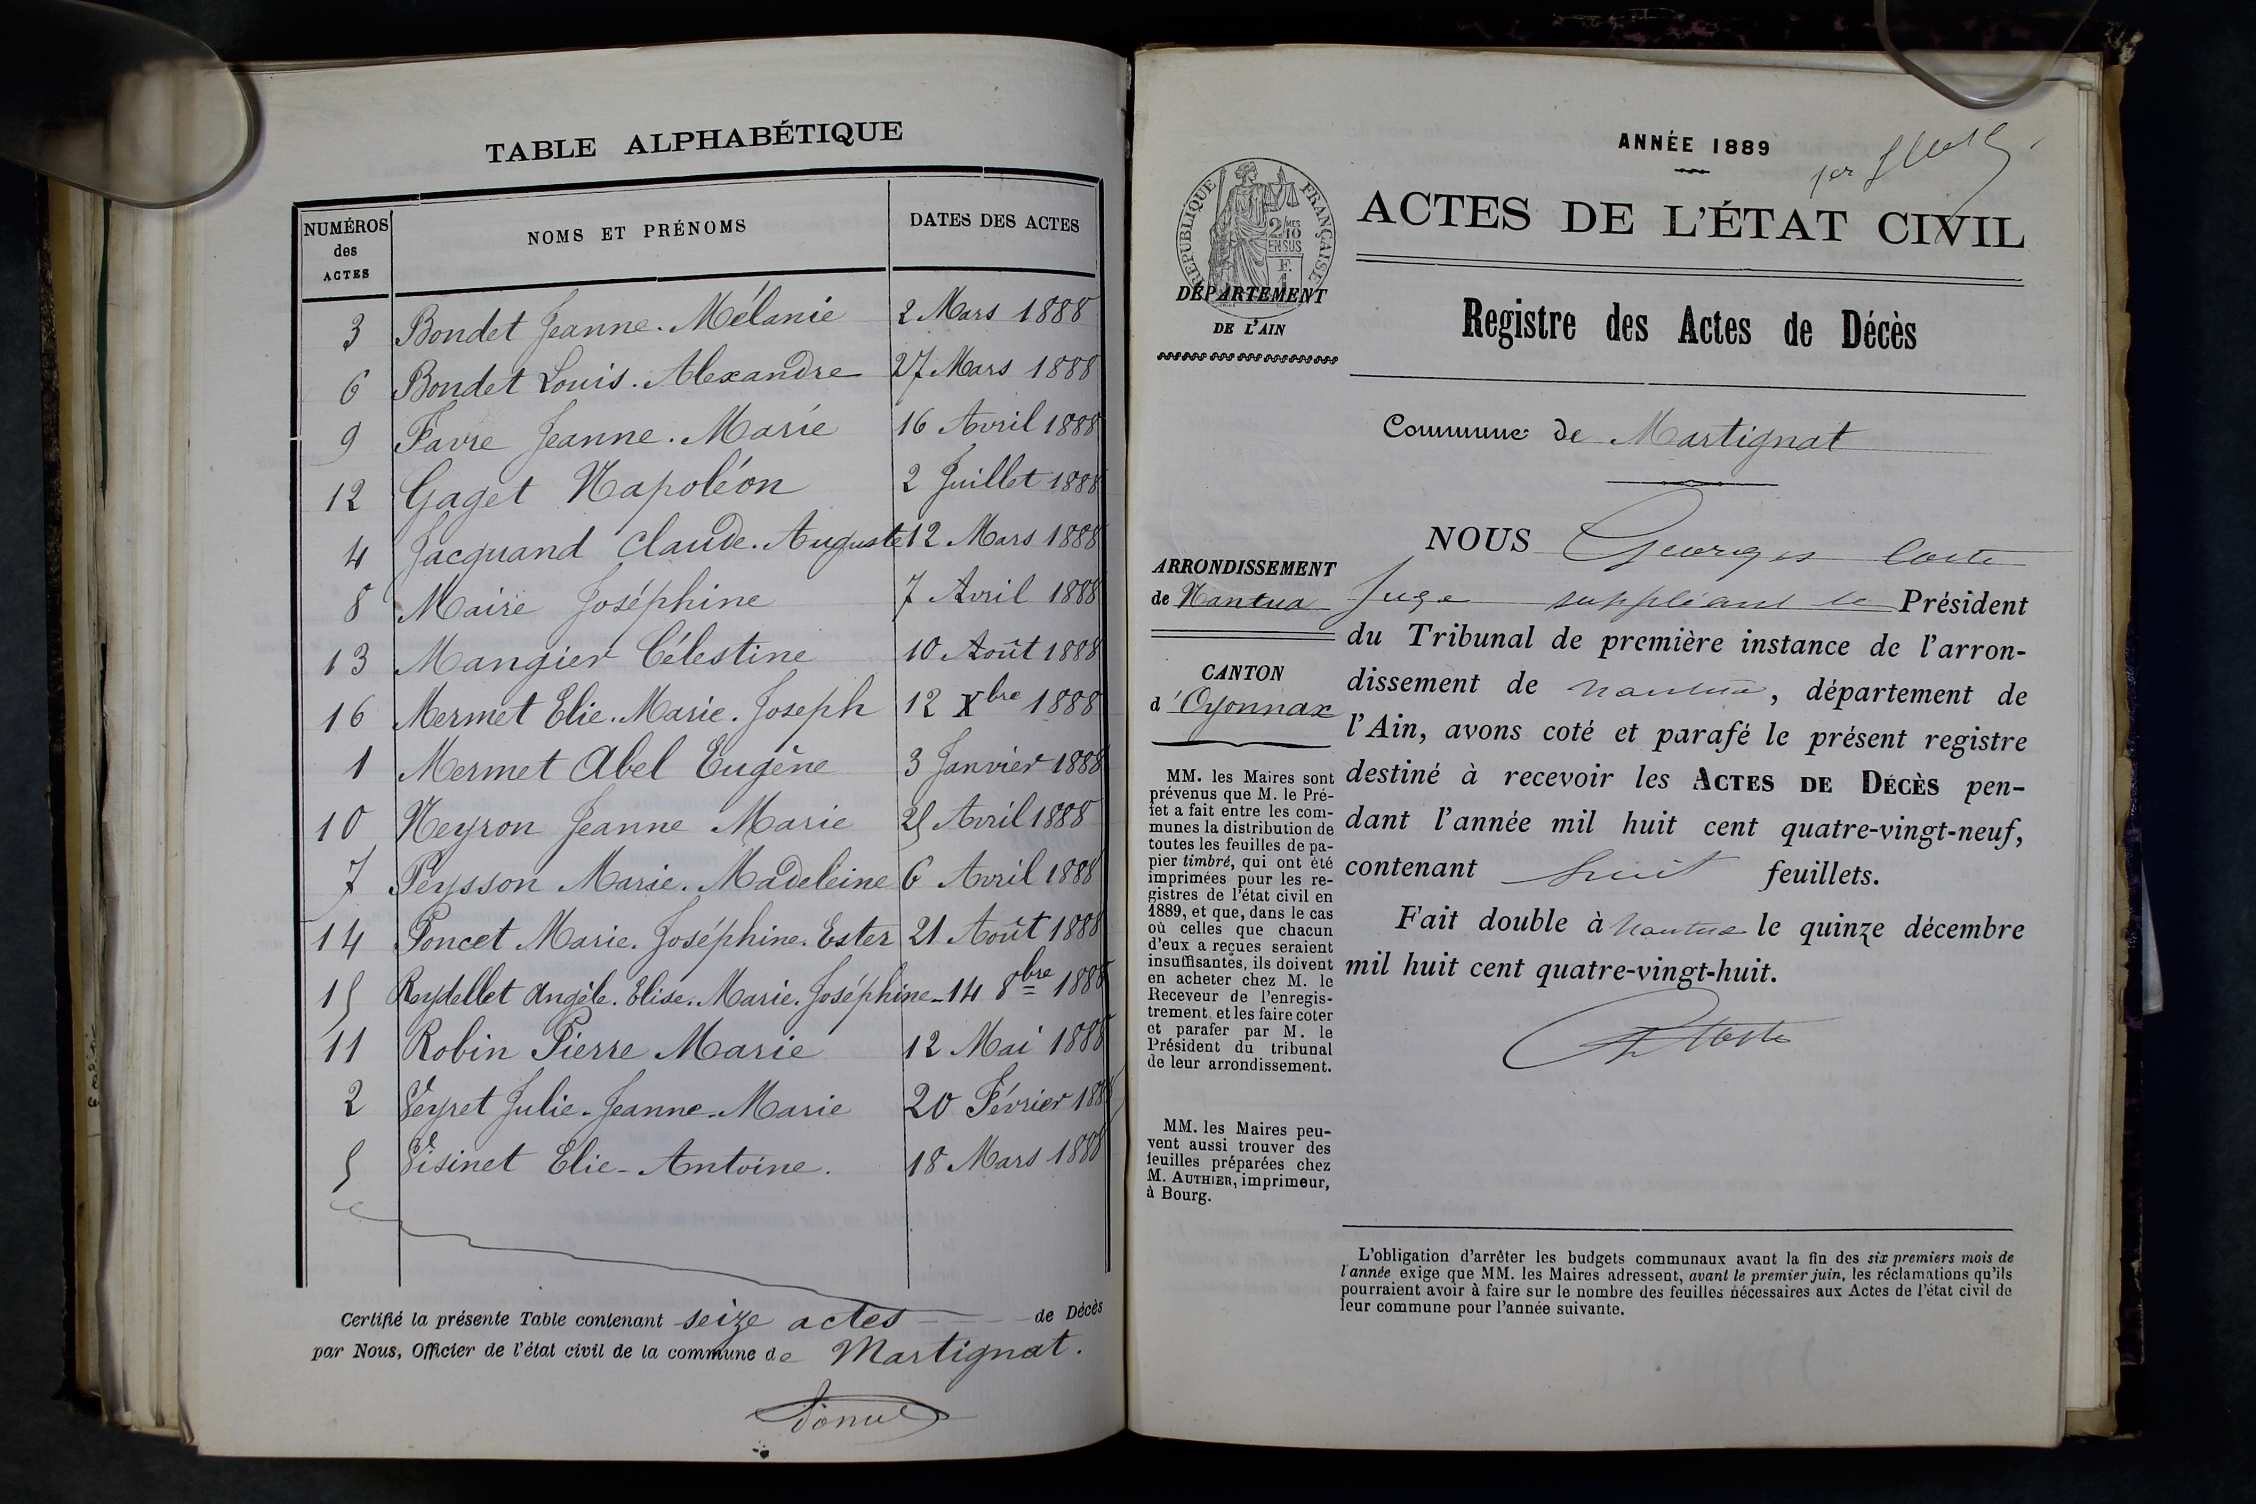 TABLE ALPHABÉTIQUE
NUMÉROS des ACTES
NOMS ET PRÉNOMS
DATES DES ACTES
3 Bondet Jeanne. Mélanie 2 Mars 1888
6 Bondet Louis. Alexandre 27 Mars 1888
9 Favre Jeanne. Marie 16 Avril 1888
12 Gaget Napoléon 2 Juillet 1888
4 Jacquand Claude. Auguste 12 Mars 1888
8 Maire Joséphine 7 Avril 1888
13 Mangier Célestine 10 Août 1888
16 Mermet Elie. Marie. Joseph 12 Xbre 1888
1 Mermet Abel Eugène 3 Janvier 1888
10 Neyron Jeanne Marie 25 Avril 1888
7 Peysson Marie. Madeleine 6 Avril 1888
14 Poncet Marie. Joséphine. Ester 21 Août 1888
15 Reydellet Angèle. Elise. Marie. Joséphine - 14 8bre 1888
11 Robin Pierre Marie 12 Mai 1888
2 Veyret Julie. Jeanne. Marie 20 Février 1888
5 Visinet Elie - Antoine. 18 Mars 1888
Certifié la présente Table contenant seize actes de Décès
par Nous, Officier de l'état civil de la commune de Martignat.
ANNÉE 1889
1er
RÉPUBLIQUE FRANÇAISE
2/10MES
EN SUS
F.
1
ACTES DE L'ÉTAT CIVIL
DÉPARTEMENT
DE L'AIN
Registre des Actes de Décès
Commune de Martignat
ARRONDISSEMENT
de Nantua
CANTON
d'Oyonnax
MM. les Maires sont
prévenus que M. le Pré-
fet a fait entre les com-
munes la distribution de
toutes les feuilles de pa-
pier timbré, qui ont été
imprimées pour les re-
gistres de l'état civil en
1889, et que, dans le cas
où celles que chacun
d'eux a reçues seraient
insuffisantes, ils doivent
en acheter chez M. le
Receveur de l'enregis-
trement, et les faire coter
et parafer par M. le
Président du tribunal
de leur arrondissement.
MM. les Maires peu-
vent aussi trouver des
feuilles préparées chez
M. AUTHIER, imprimeur,
à Bourg.
NOUS Georges Coste
Juge suppléant le Président
du Tribunal de première instance de l'arron-
dissement de Nantua, département de
l'Ain, avons coté et parafé le présent registre
destiné à recevoir les ACTES DE DÉCÈS pen-
dant l'année mil huit cent quatre-vingt-neuf,
contenant huit feuillets.
Fait double à Nantua le quinze décembre
mil huit cent quatre-vingt-huit.
L'obligation d'arrêter les budgets communaux avant la fin des six premiers mois de
l'année exige que MM. les Maires adressent, avant le premier juin, les réclamations qu'ils
pourraient avoir à faire sur le nombre des feuilles nécessaires aux Actes de l'état civil de
leur commune pour l'année suivante.